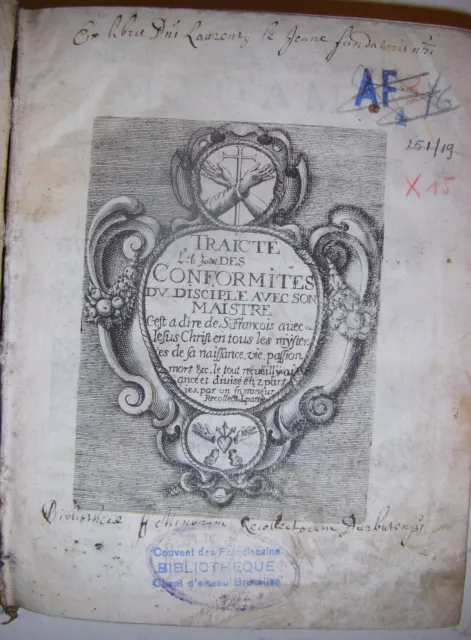 Ex libris Dni Laurentÿ le Jeune fundatoris nri
AF
151/19
X 15
TRAICTÉ
DES
CONFORMITES
DV DISCIPLE AVEC SON
MAISTRE
C'est a dire de S. francois avec
Iesus Christ en tous les myster
es de sa naissance, vie, passion,
mort &c. le tout recueilly
ance et divisé en 2 part
ies, par un fr. mineur
Recollect. I. partie
Bibliothecæ ff Minorum Recollectorum Durbutensÿ
Couvent des Franciscains
BIBLIOTHEQUE
Chant d'oiseau Bruxelles